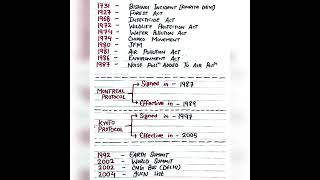 1731 - BISHNOI INCIDENT (AMRITA DEVI)
1927 - FOREST ACT
1968 - INSECTICIDE ACT
1972 - WILDLIFE PROTECTION ACT
1974 - WATER POLLUTION ACT
1974 - CHIPKO MOVEMENT
1980 - JFM
1981 - AIR POLLUTION ACT
1986 - ENVIRONMENT ACT
1987 - NOISE POLLn ADDED TO AIR POLLn
MONTREAL PROTOCOL
Signed in - 1987
Effective in - 1989
KYOTO PROTOCOL
Signed in - 1997
Effective in - 2005
1992 - EARTH SUMMIT
2002 - WORLD SUMMIT
2002 - CNG BUS (DELHI)
2004 -